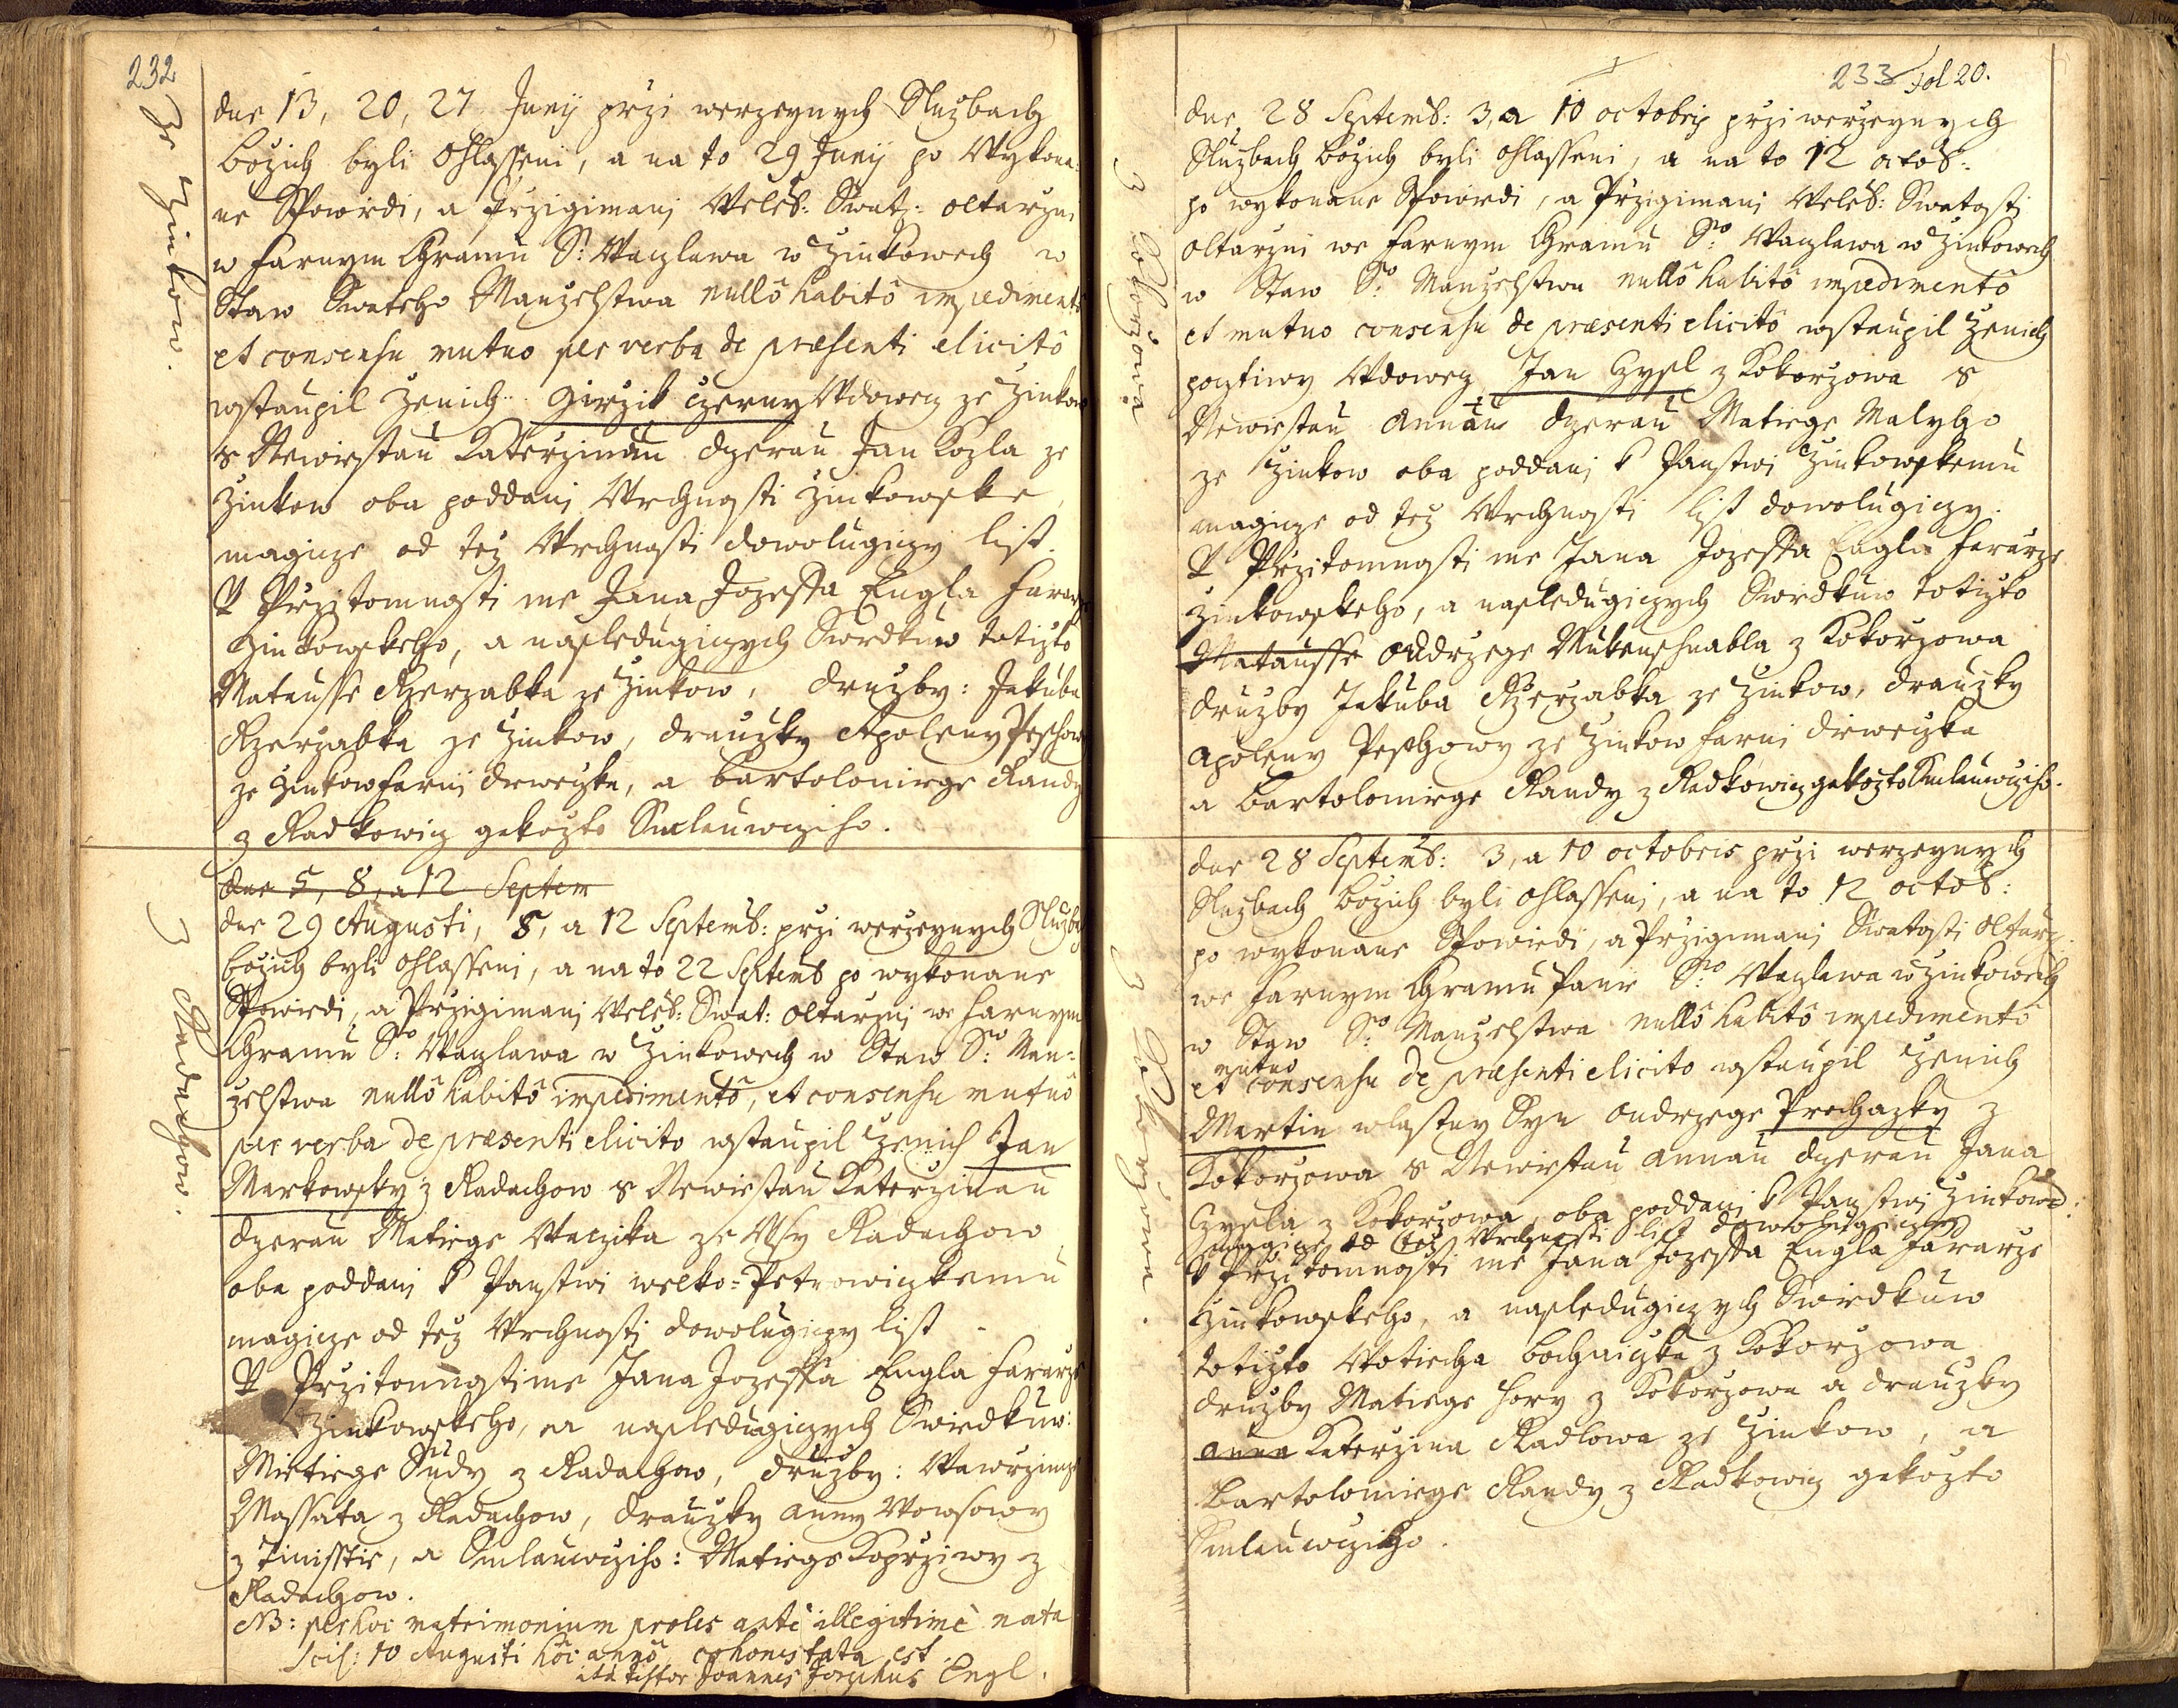 232
Ze Žinkow.
dne 13, 20, 27 Junij przi werzegnych Službach
božich byli ohlasseni, a na to 29 Junij po Wykona-
ne Spowědi, a Przigimani Weleb: Swat: oltarzni
w farnym Chramu S: Waczlawa w Žinkowech w
Staw Swateho Manzelstwa nullô habitô impedimentô
et consensu mutuo per verba de præsenti elicitô
wstaupil Ženich Girzik Czerny Wdowecz ze Žinkow
s Newiestau Katerzinau dczerau Jan Kozla ze
Žinkow oba poddani Wrchnosti Žinkowske,
magicze od tez Wrchnosti dowolugiczy list.
W Przitomnosti me Jana Jozeffa Engla Fararze
Žinkowskeho, a nasledugiczych Swedkuw totižto
Matausse Rzerzabka ze Žinkow, družby: Jakuba
Rzerzabka ze Žinkow, draužky Apoleny Peschowy
ze Žinkow farni dieweczka, a bartolomiege Randy
z Radkowicz gakožto Smlauwcziho.
dne 5, 8, a 12 Septem
z Radochow.
dne 29 Augusti, 8, a 12 Septemb: przi werzegnych Služb
božich byli ohlasseni, a na to 22 Septemb po wykonane
Spowiedi, a Przigimani Weleb: Swat: oltarzni we farnym
Chramu S:º Waczlawa w Žinkowech w Staw S:º Man-
zelstwa nullô habitô impedimentô, et consensu mutuô
per verba de præsenti elicito wstaupil Ženich Jan
Markowsky z Radochow s Newiestau Katerzinau
dczerau Matiege Waczika ze Wsy Radochow
oba poddani k Panstwi welko=Petrowiczkemu
magicze od tez Wrchnosti dowolugiczy list
W Przitomnosti me Jana Jozeffa Engla Fararze
Žinkowskeho, a nasledugiczych Swiedkuw:
Matiege Sudy z Radochow, družby: Wawrzincze
Massata z Radochow, draužky Anny Wowsowy
z Tinisstie, a Smlauwcziho: Matiege Koprziwy z
Radochow.
NB: per hoc matrimonium proles antè illegitimè nata
scil: 10 Augusti hôc annô, cohonestata est.
ita testor Joannes Josephus Engl.
233 fol 20.
z Kokorzowa
dne 28 Septemb: 3, a 10 octobris przi werzegnych
Službach božich byli ohlasseni, a na to 12 octob:
po wykonane Spowiedi, a Przigimani Weleb: Swatosti
oltarzni we farnym Chramu S:º Waczlawa w Žinkowech
w Staw S:º Manzelstwa nullô habitô impedimentô
et mutuo consensu de præsenti elicitô wstaupil Ženich
pocztiwy Wdowecz Jan Czysl z Kokorzowa s
Newiestau Annau dczerau Matiege Malyho
ze Žinkow oba poddani k Panstwi Žinkowskemu
magicze od tez Wrchnosti list dowolugiczy.
W Przitomnosti me Jana Jozeffa Engla fararze
Žinkowskeho, a nasledugiczych Swiedkuw totižto
Matausse Ondrzege Mukenschnabla z Kokorzowa
družby Jakuba Rzerzabka ze Žinkow, draužky
Apoleny Peschowy ze Žinkow farni dieweczka
a Bartolomiege Randy z Radkowicz gakožto Smlauwcziho.
z Kokorzowa.
dne 28 Septemb: 3, a 10 octobris przi werzegnych
Službach božich byli ohlasseni, a na to 12 octob:
po wykonane Spowiedi, a Przigimani Swatosti oltarz.
we farnym Chramu Panie S:º Waczlawa w Žinkowech
w Staw S:º Manzelstwa nullô habitô impedimentô
mutuo
et consensu de præsenti elicito wstaupil Ženich
Martin wlastny Syn Ondrzege Prochazky z
Kokorzowa s Newiestau Annau dczerau Jana
Czysla z Kokorzowa, oba poddani k Panstwi Žinkows:
magicze od tez Wrchnosti list dowolugiczy
W Przitomnosti me Jana Jozeffa Engla Fararze
Žinkowskeho, a nasledugiczych Swiedkuw
totižto Wotiecha Bochniczka z Kokorzowa
družby Matiege Hory z Kokorzowa a draužky
anna Katerzina Radlowa ze Žinkow, a
Bartolomiege Randy z Radkowicz gakožto
Smlauwcziho.